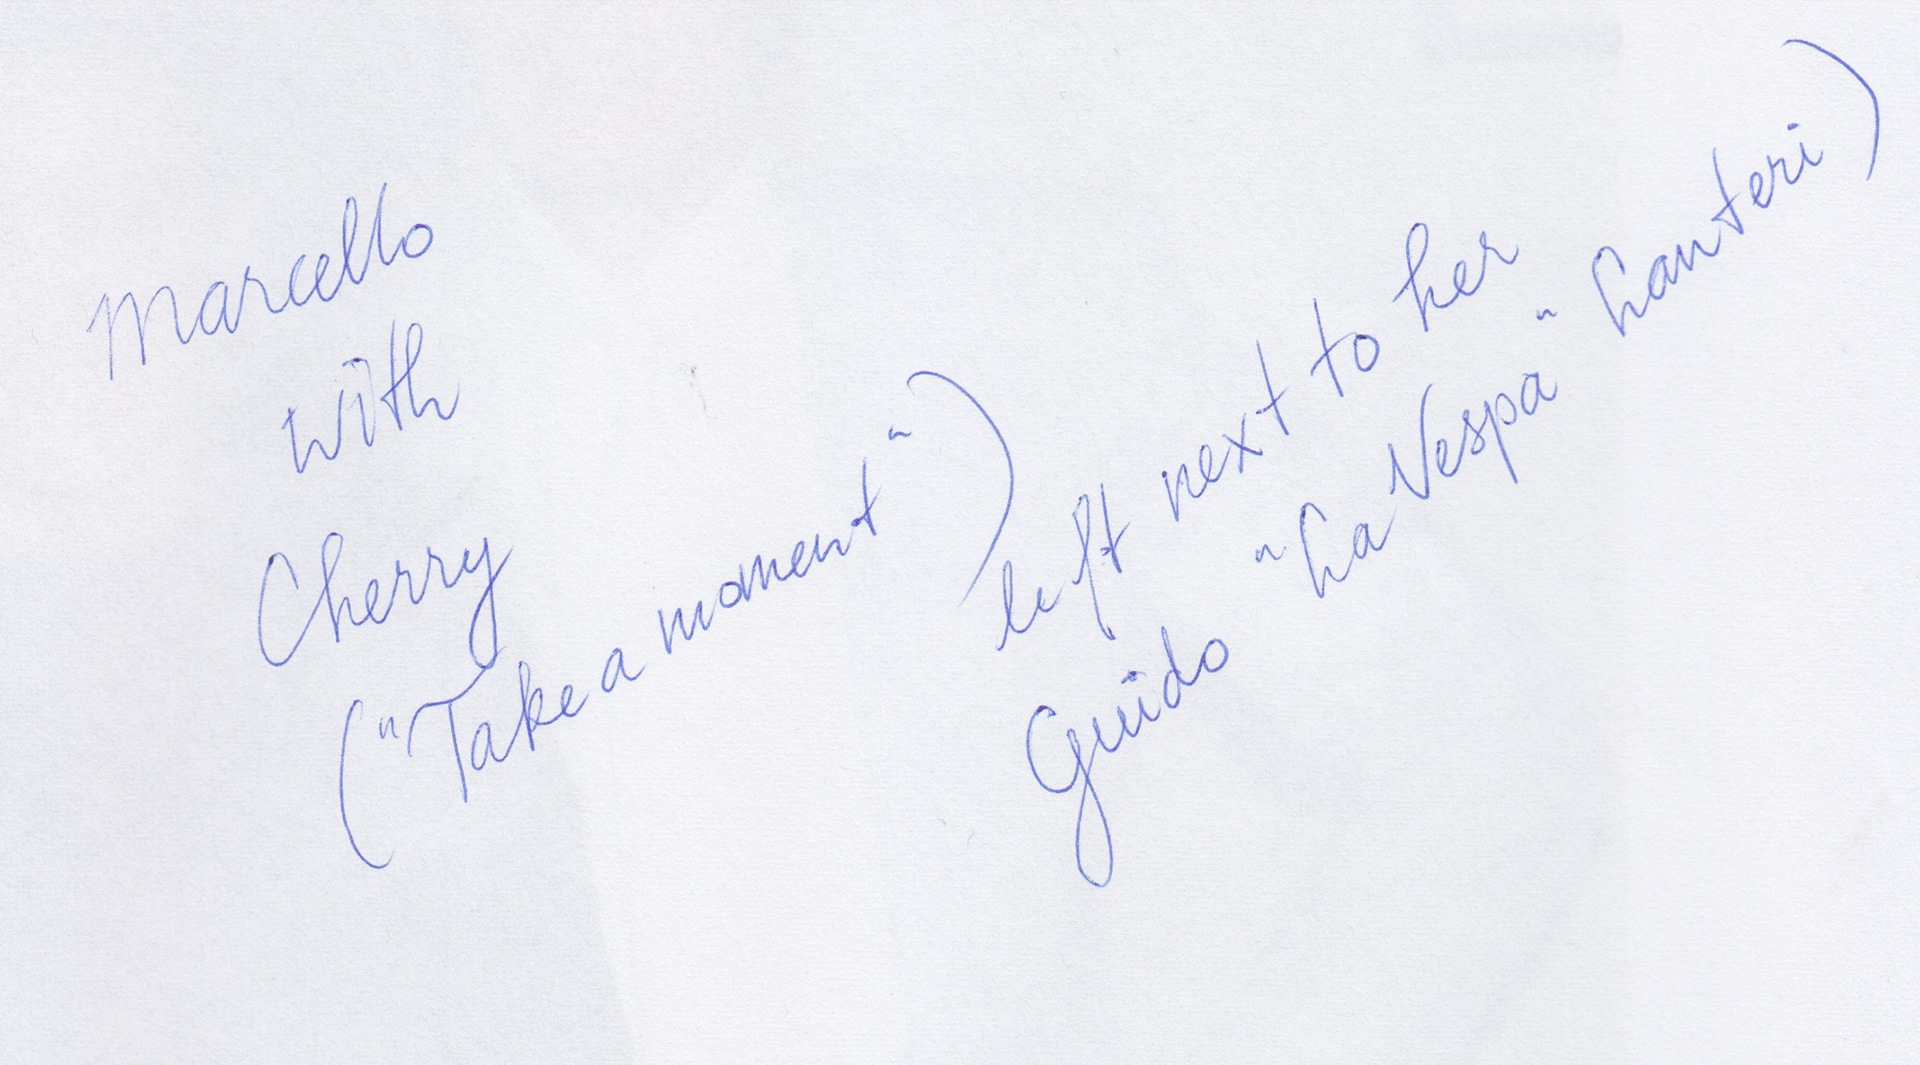 Marcello
with
Cherry
("Take a moment")
left next to her
Guido "La Vespa" Lanteri)